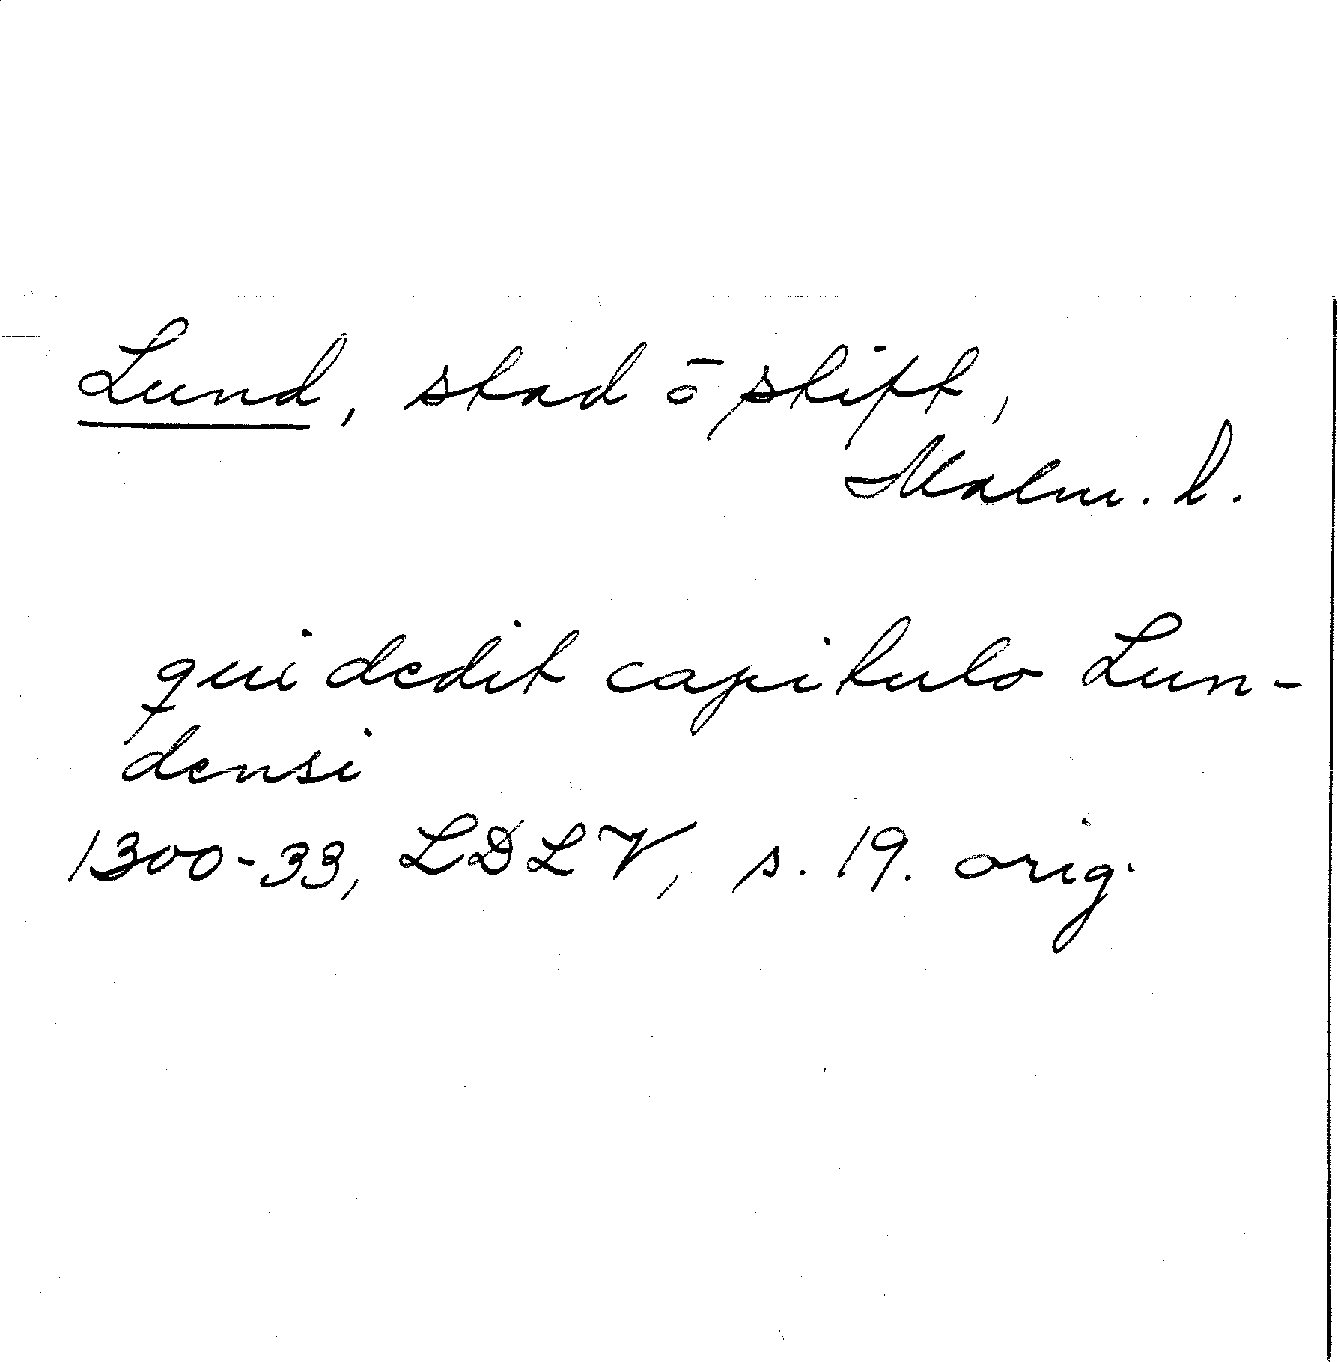 Lund, stad ō stift,
Malm. l.
qui dedit capitulo Lun-
densi
1300-33, LDLV, s. 19. orig.